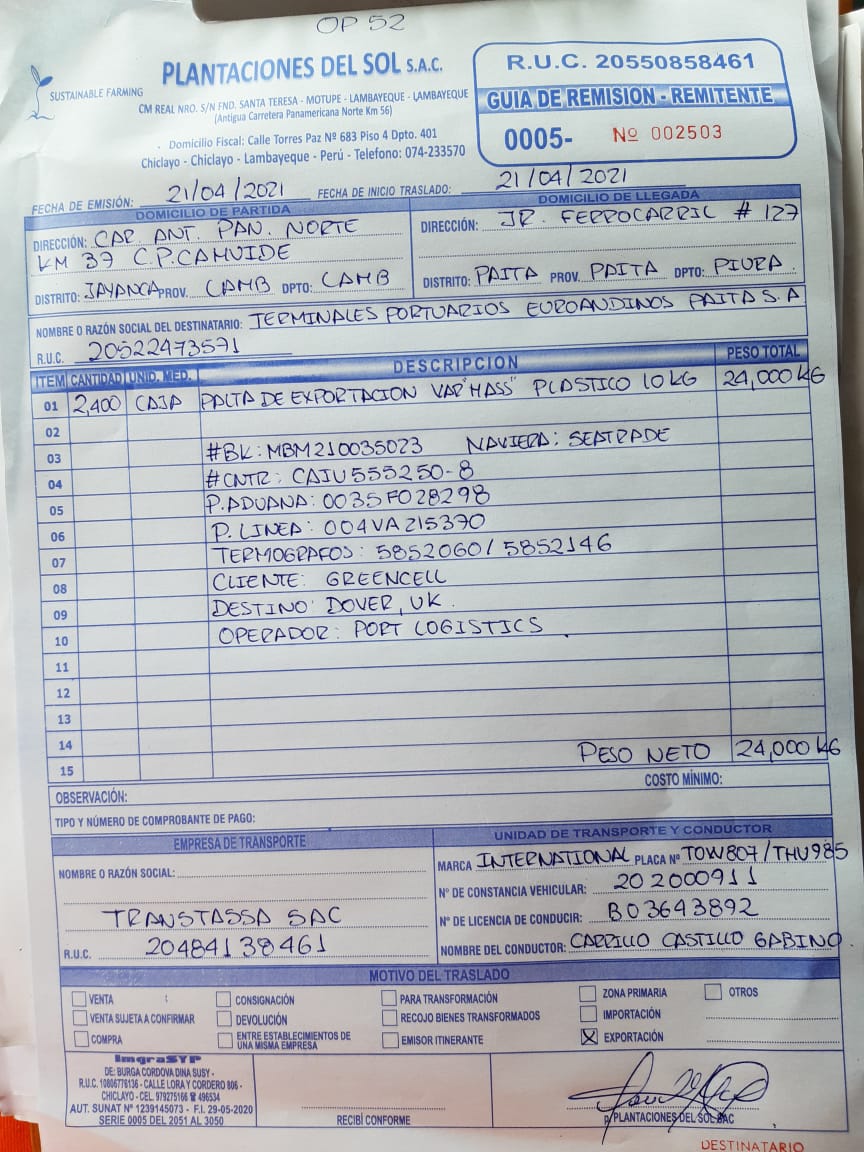 OP 52
SUSTAINABLE FARMING
PLANTACIONES DEL SOL S.A.C.
CM REAL NRO. S/N FND. SANTA TERESA - MOTUPE - LAMBAYEQUE - LAMBAYEQUE
(Antigua Carretera Panamericana Norte Km 56)
Domicilio Fiscal: Calle Torres Paz Nº 683 Piso 4 Dpto. 401
Chiclayo - Chiclayo - Lambayeque - Perú - Telefono: 074-233570
R.U.C. 20550858461
GUIA DE REMISION - REMITENTE
0005- Nº 002503
FECHA DE EMISIÓN: 21/04/2021 FECHA DE INICIO TRASLADO: 21/04/2021
DOMICILIO DE PARTIDA
DIRECCIÓN: CAR. ANT. PAN. NORTE
KM 37 C.P. CAHUIDE
DISTRITO: JAYANCA PROV. LAMB DPTO: LAMB
DOMICILIO DE LLEGADA
DIRECCIÓN: JR. FERROCARRIL # 127
DISTRITO: PAITA PROV. PAITA DPTO: PIURA
NOMBRE O RAZÓN SOCIAL DEL DESTINATARIO: TERMINALES PORTUARIOS EUROANDINOS PAITA S.A
R.U.C. 20522473571
ITEM CANTIDAD UNID. MED. DESCRIPCION PESO TOTAL
01 2,400 CAJA PALTA DE EXPORTACION VAR "HASS" PLASTICO 10 KG 24,000 KG
02
03 #BK: MBM210035023 NAVIERA: SEATRADE
04 #CNTR: CAIU555250-8
05 P. ADUANA: 0035F028298
06 P. LINEA: 004VA215370
07 TERMOGRAFOS: 5852060 / 5852146
08 CLIENTE: GREENCELL
09 DESTINO: DOVER, UK.
10 OPERADOR: PORT LOGISTICS
11
12
13
14 PESO NETO 24,000 KG
15 COSTO MÍNIMO:
OBSERVACIÓN:
TIPO Y NÚMERO DE COMPROBANTE DE PAGO:
EMPRESA DE TRANSPORTE
NOMBRE O RAZÓN SOCIAL:
TRANSTASSA SAC
R.U.C. 20484138461
UNIDAD DE TRANSPORTE Y CONDUCTOR
MARCA INTERNATIONAL PLACA Nº TOW807/THU985
Nº DE CONSTANCIA VEHICULAR: 202000911
Nº DE LICENCIA DE CONDUCIR: B03643892
NOMBRE DEL CONDUCTOR: CARRILLO CASTILLO GABINO
MOTIVO DEL TRASLADO
VENTA CONSIGNACIÓN PARA TRANSFORMACIÓN ZONA PRIMARIA OTROS
VENTA SUJETA A CONFIRMAR DEVOLUCIÓN RECOJO BIENES TRANSFORMADOS IMPORTACIÓN
COMPRA ENTRE ESTABLECIMIENTOS DE EMISOR ITINERANTE X EXPORTACIÓN
UNA MISMA EMPRESA
ImgraSYP
DE: BURGA CORDOVA DINA SUSY -
R.U.C. 10806778136 - CALLE LORA Y CORDERO 806 -
CHICLAYO - CEL. 979275166 ☎ 496534
AUT. SUNAT Nº 1239145073 - F.I. 29-05-2020
SERIE 0005 DEL 2051 AL 3050
RECIBÍ CONFORME
p/ PLANTACIONES DEL SOL SAC
DESTINATARIO